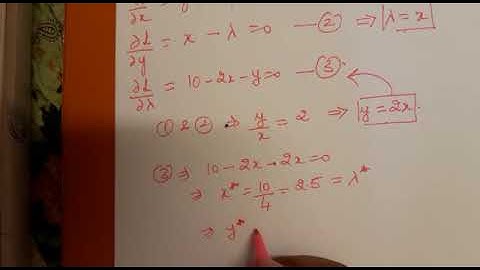 ∂x
∂L/∂y = x - λ = 0 — ② ⇒ λ = x
∂L/∂λ = 10 - 2x - y = 0 — ③
① & ② ⇒ y/x = 2 ⇒ y = 2x.
③ ⇒ 10 - 2x - 2x = 0
⇒ x* = 10/4 = 2.5 = λ*
⇒ y*